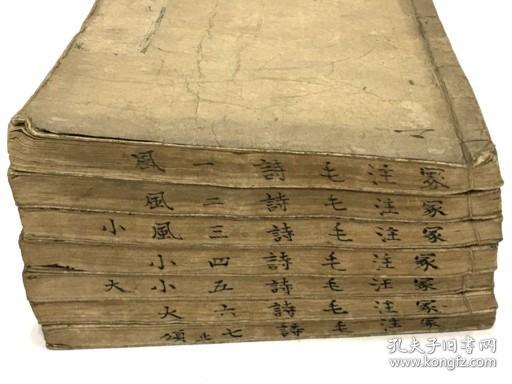 冢注毛詩一風
冢注毛詩二風
冢注毛詩三風小
冢注毛詩四小
冢注毛詩五小大
冢注毛詩六大
冢注毛詩七止頌
孔夫子旧书网
www.kongfz.com